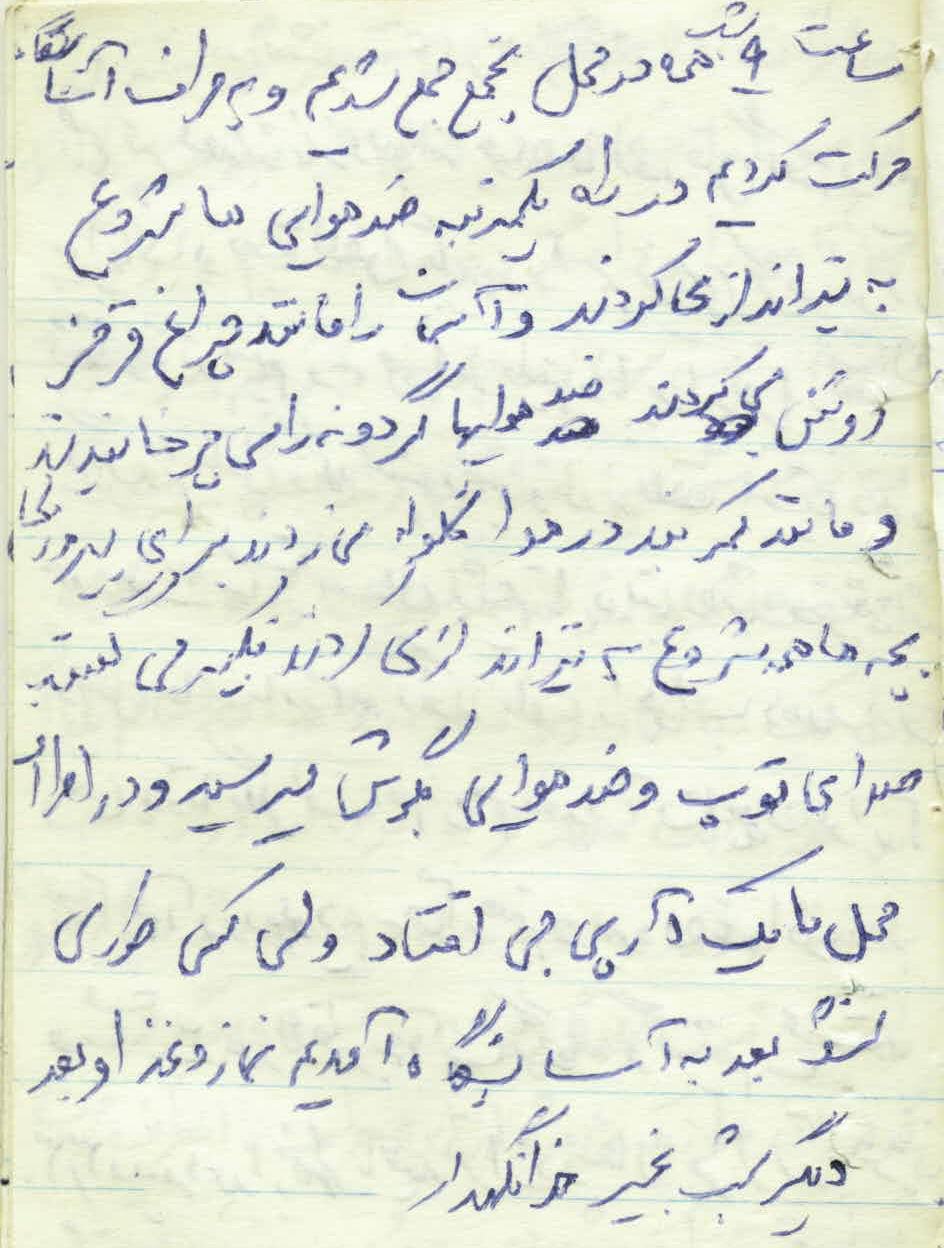 ساعت ۹ شب همه در محل تجمع جمع شدیم و به طرف آسایشگاه
حرکت کردیم در راه یکمرتبه ضد هوایی ها شروع
به تیراندازی کردند و آسمان را مانند چراغ قرمز
روشن می کردند ضد هوایها گردونه را می چرخانیدند
و مانند کمربند در هوا گلوله می زدند برای پیروزی
بچه ها هم شروع به تیراندازی کردند تکبیر می گفتند
صدای توپ و ضد هوایی بگوش میرسید و در اطراف
محل ما یک آرپی جی افتاد ولی کسی طوری
نشد بعد به آسایشگاه آمدیم نماز و غذا و بعد
دیگر شب بخیر خدانگهدار